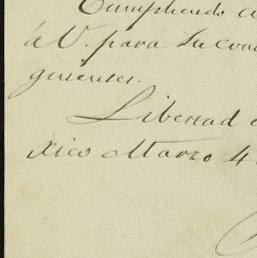 Cumpliendo c
á V. para su con
guientes.
Libertad e
xico Marzo 4